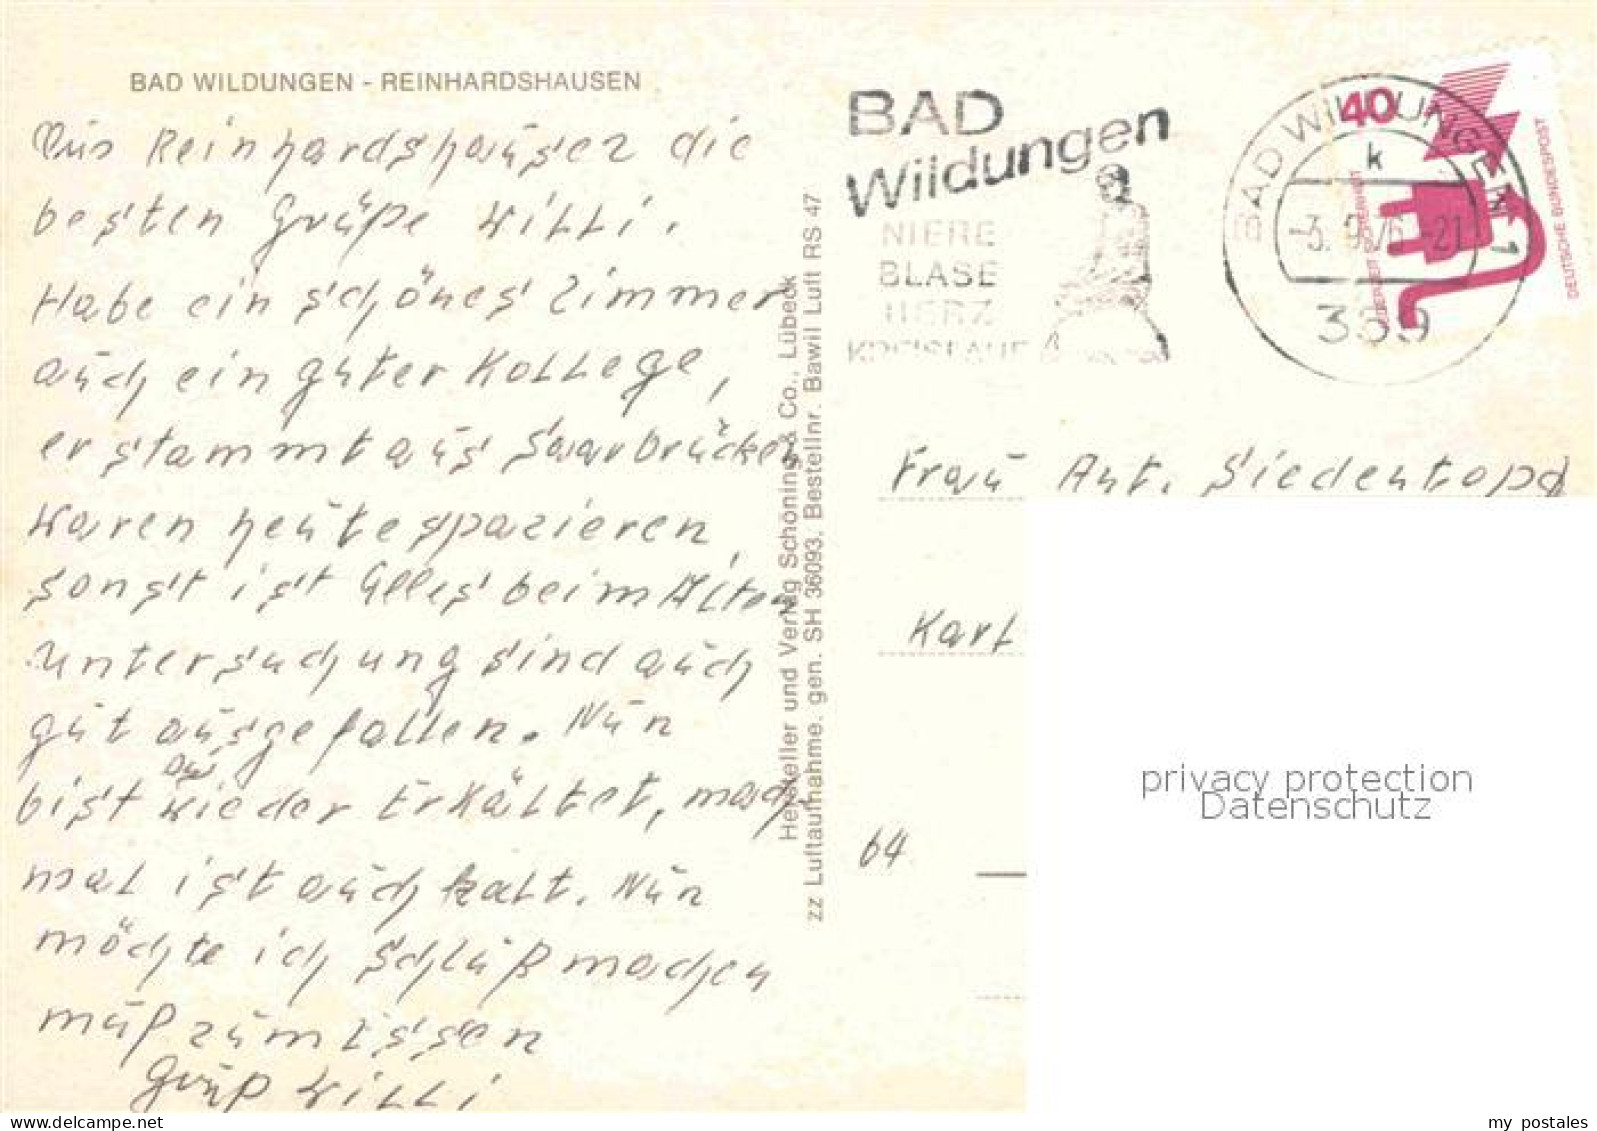 BAD WILDUNGEN - REINHARDSHAUSEN
Aus Reinhardshausen die
besten Grüße Willi.
Habe ein schönes Zimmer
auch ein guter Kollege,
er stammt aus Saarbrücken
Waren heute spazieren,
sonst ist Alles beim Alten
Untersuchung sind auch
gut ausgefallen. Nun
bist du wieder Erkältet, mach
mal ist auch kalt. Nun
möchte ich Schluß machen
muß zum Essen
Gruß Willi
Hersteller und Verlag Schöning & Co., Lübeck
zz Luftaufnahme. gen. SH 36093. Bestellnr. Bawil Luft RS 47
BAD
Wildungen
NIERE
BLASE
HERZ
KREISLAUF
BAD WILDUNGEN 1
k
-3. 9. 76 -21
359
40
JEDERZEIT SICHERHEIT
DEUTSCHE BUNDESPOST
Frau Ant. Siedentopf
Karl
64
privacy protection
Datenschutz
www.delcampe.net
my_postales